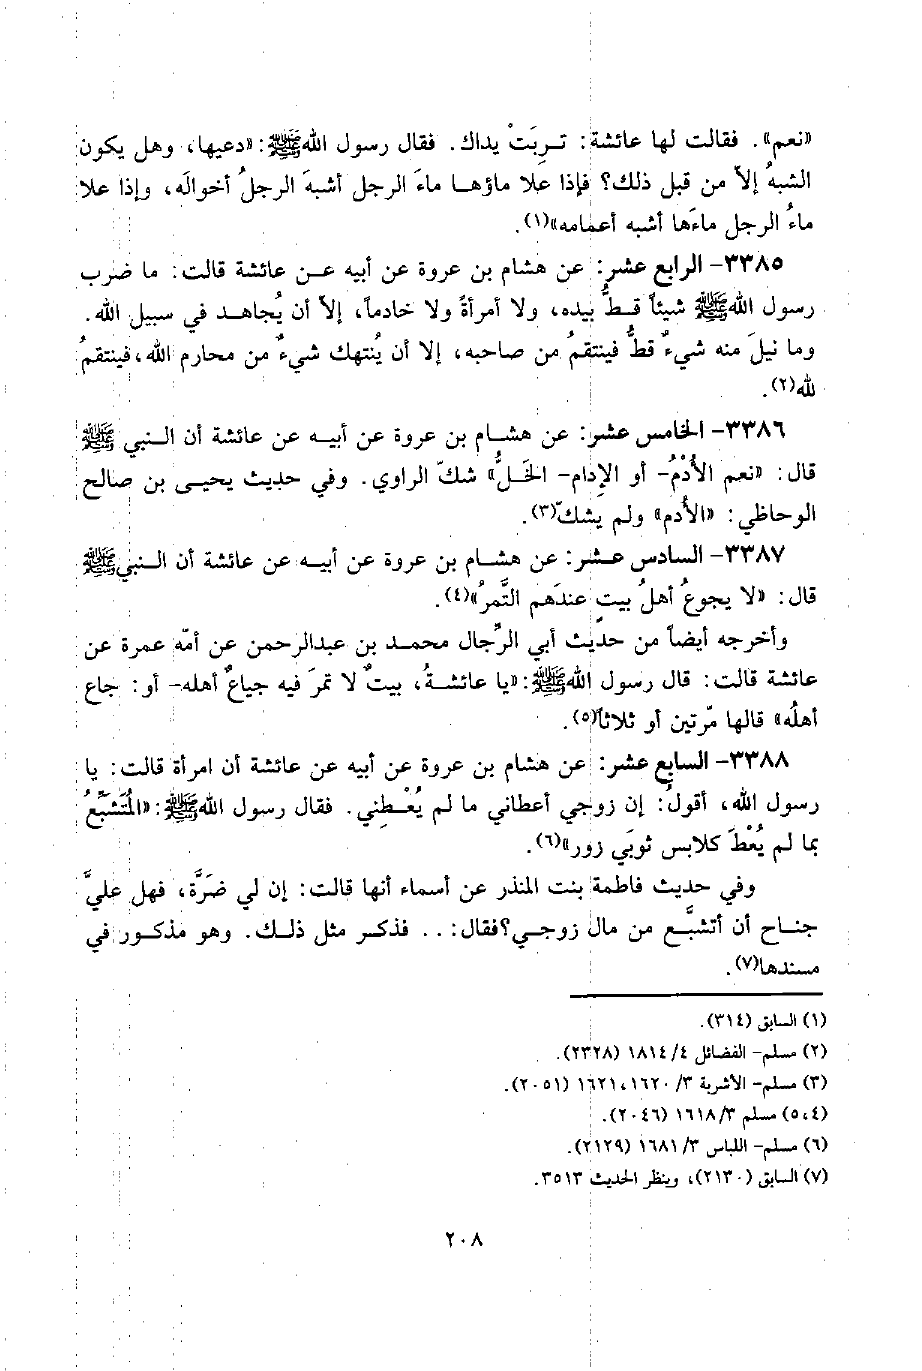 «نعم». فقالت لها عائشة: تـربَتْ يداك. فقال رسول الله ﷺ: «دعيها، وهل يكون
الشبهُ إلاّ من قبل ذلك؟ فإذا علا ماؤهـا ماءَ الرجل أشبهَ الرجلُ أخوالَه، وإذا علا
ماءُ الرجل ماءَها أشبه أعمامه»(١).
٣٣٨٥- الرابع عشر: عن هشام بن عروة عن أبيه عـن عائشة قالت: ما ضرب
رسول الله ﷺ شيئاً قـطُّ بيده، ولا أمرأةً ولا خادماً، إلاّ أن يُجاهـد في سبيل الله.
وما نيلَ منه شيءٌ قطُّ فينتقمُ من صاحبه، إلا أن يُنتهك شيءٌ من محارم الله، فينتقمُ
لله(٢).
٣٣٨٦- الخامس عشر: عن هشـام بن عروة عن أبيـه عن عائشة أن النـبي ﷺ
قال: «نعم الأُدْمُ- أو الإِدام- الخَلُّ» شكّ الراوي. وفي حديث يحيـى بن صالح
الوحاظي: «الأدم» ولم يشكّ(٣).
٣٣٨٧- السادس عـشر: عن هشـام بن عروة عن أبيـه عن عائشة أن النـبي ﷺ
قال: «لا يجوعُ أهلُ بيتٍ عندَهم التَّمرُ»(٤).
وأخرجه أيضاً من حديث أبي الرِّجال محمـد بن عبدالرحمن عن أمّه عمرة عن
عائشة قالت: قال رسول الله ﷺ: «يا عائشـةُ، بيتٌ لا تمرَ فيه جياعٌ أهله- أو: جاع
أهلُه» قالها مرّتين أو ثلاثاً(٥).
٣٣٨٨- السابع عشر: عن هشام بن عروة عن أبيه عن عائشة أن امرأة قالت: يا
رسول الله، أقولُ: إن زوجي أعطاني ما لم يُعْـطِني. فقال رسول الله ﷺ: «المُتَشَبِّعُ
بما لم يُعْطَ كلابس ثوبَي زور»(٦).
وفي حديث فاطمة بنت المنذر عن أسماء أنها قالت: إن لي ضَرَّة، فهل عليَّ
جناح أن أتشبَّـع من مال زوجـي؟ فقال: .. فذكـر مثل ذلـك. وهو مذكـور في
مسندها(٧).
(١) السابق (٣١٤).
(٢) مسلم- الفضائل ٤/ ١٨١٤ (٢٣٢٨).
(٣) مسلم- الأشربة ٣/ ١٦٢٠، ١٦٢١ (٢٠٥١).
(٤، ٥) مسلم ٣/ ١٦١٨ (٢٠٤٦).
(٦) مسلم- اللباس ٣/ ١٦٨١ (٢١٢٩).
(٧) السابق (٢١٣٠)، وينظر الحديث ٣٥١٣.
٢٠٨